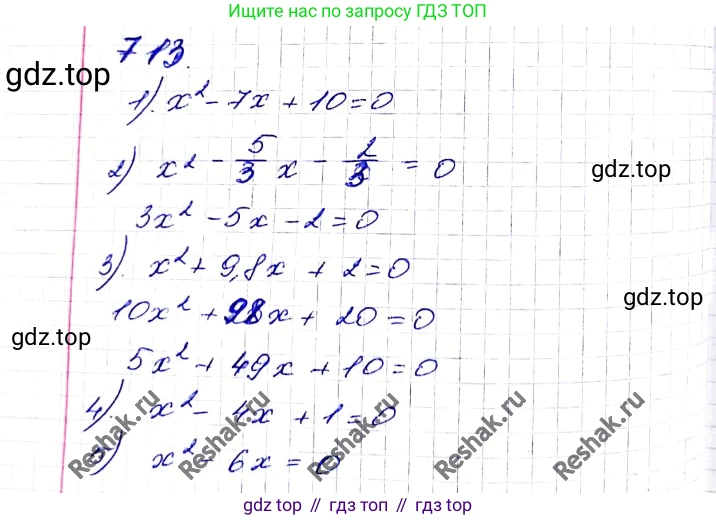 Ищите нас по запросу ГДЗ ТОП
713.
gdz.top
1). x² - 7x + 10 = 0
2) x² - 5/3 x - 2/3 = 0
gdz.top
3x² - 5x - 2 = 0
3). x² + 9,8x + 2 = 0
gdz.top
10x² + 98x + 20 = 0
gdz.top
5x² + 49x + 10 = 0
4) x² - 4x + 1 = 0
5) x² - 6x = 0
Reshak.ru
Reshak.ru
Reshak.ru
Reshak.ru
Reshak.ru
Reshak.ru
gdz top // гдз топ // гдз.top